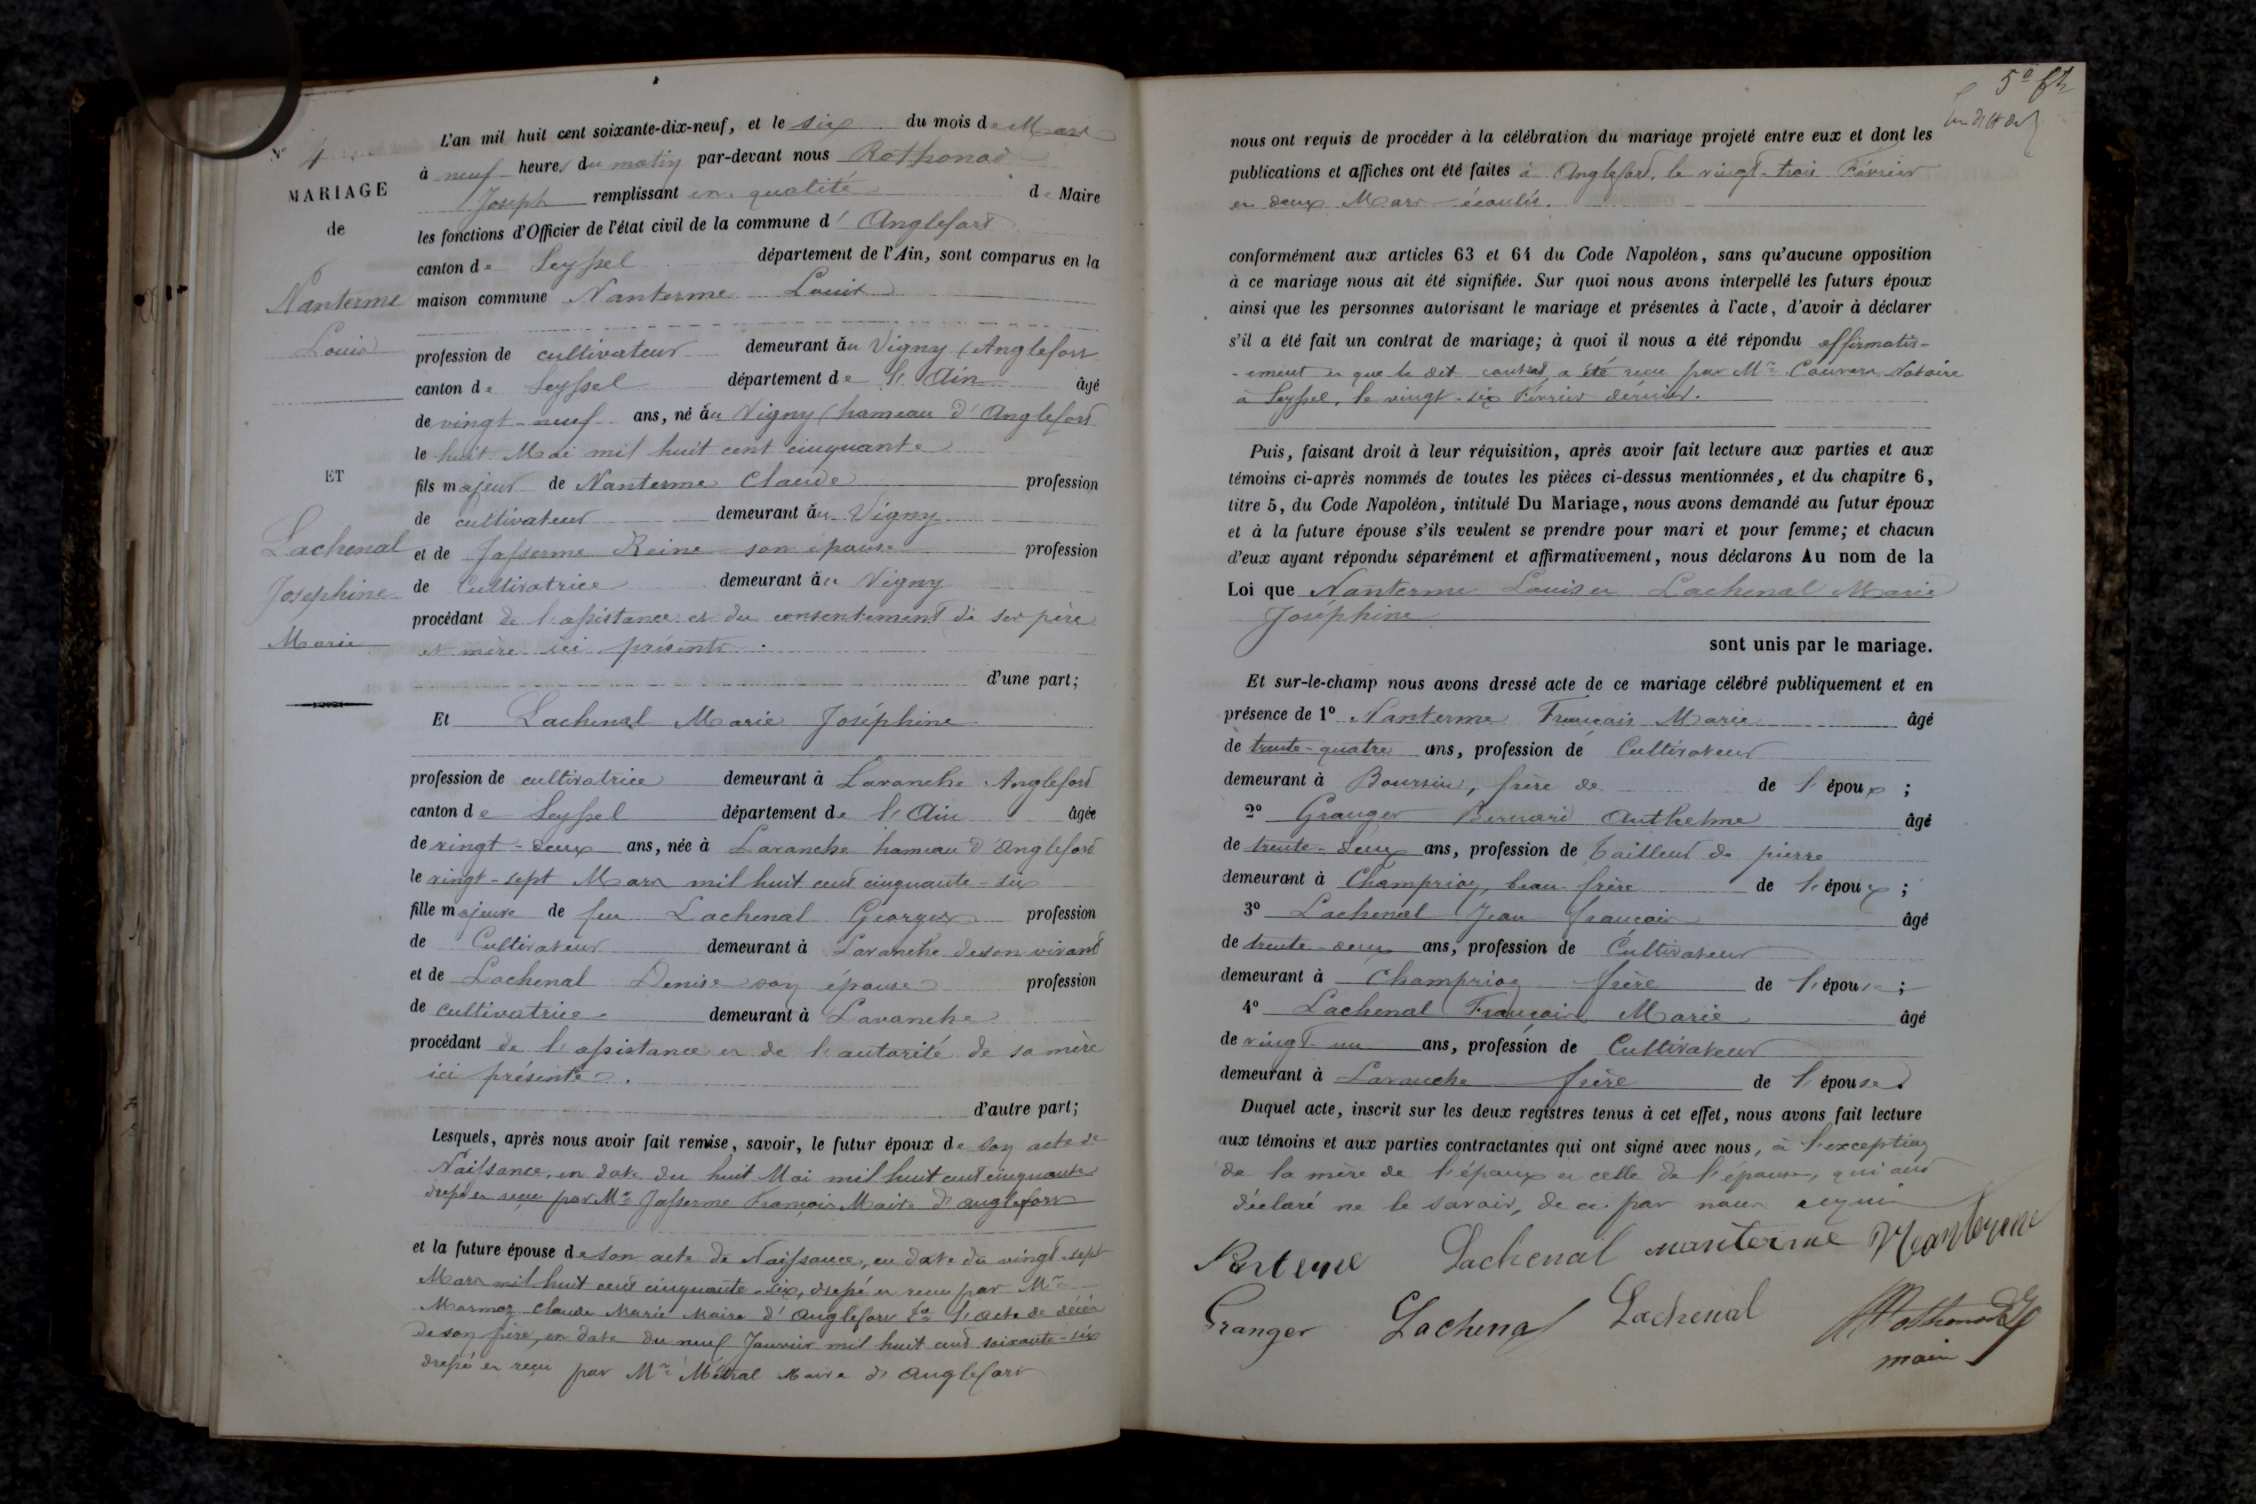 N° 4
MARIAGE
de
Nanterme
Louis
ET
Lachenal
Joséphine
Marie
L'an mil huit cent soixante-dix-neuf, et le six du mois de Mars
à neuf heures du matin par-devant nous Rothonod
Joseph remplissant en qualité de Maire
les fonctions d'Officier de l'état civil de la commune d' Anglefort
canton de Seyssel département de l'Ain, sont comparus en la
maison commune Nanterme Louis
profession de cultivateur demeurant à au Vigny (Anglefort
canton de Seyssel département de l'Ain âgé
de vingt-neuf ans, né à au Vigny (hameau d'Anglefort
le huit Mai mil huit cent cinquante
fils majeur de Nanterme Claude profession
de cultivateur demeurant à au Vigny
et de Jasserme Reine son épouse profession
de Cultivatrice demeurant à au Vigny
procédant de l'assistance et du consentement de ses père
et mère ici présents.
d'une part;
Et Lachenal Marie Joséphine
profession de cultivatrice demeurant à Lavanche Anglefort
canton de Seyssel département de l'Ain âgée
de vingt-deux ans, née à Lavanche hameau d'Anglefort
le vingt-sept Mars mil huit cent cinquante-six
fille majeure de feu Lachenal Georges profession
de Cultivateur demeurant à Lavanche de son vivant
et de Lachenal Denise son épouse profession
de cultivatrice demeurant à Lavanche
procédant de l'assistance et de l'autorité de sa mère
ici présente.
d'autre part;
Lesquels, après nous avoir fait remise, savoir, le futur époux de son acte de
Naissance, en date du huit Mai mil huit cent cinquante
dressé et reçu par Mr Jasserme François Maire d'Anglefort
et la future épouse de son acte de Naissance, en date du vingt-sept
Mars mil huit cent cinquante-six, dressé et reçu par Mr
Marmoz Claude Marie Maire d'Anglefort 2° l'acte de décès
de son père, en date du neuf Janvier mil huit cent soixante-six
dressé et reçu par Mr Métral Maire d'Anglefort
5e
nous ont requis de procéder à la célébration du mariage projeté entre eux et dont les
publications et affiches ont été faites à Anglefort, le vingt-trois Février
et deux Mars écoulés.
conformément aux articles 63 et 64 du Code Napoléon, sans qu'aucune opposition
à ce mariage nous ait été signifiée. Sur quoi nous avons interpellé les futurs époux
ainsi que les personnes autorisant le mariage et présentes à l'acte, d'avoir à déclarer
s'il a été fait un contrat de mariage; à quoi il nous a été répondu affirmativ-
-ement et que le dit contrat a été reçu par Mr Notaire
à Seyssel, le vingt-six Février dernier.
Puis, faisant droit à leur réquisition, après avoir fait lecture aux parties et aux
témoins ci-après nommés de toutes les pièces ci-dessus mentionnées, et du chapitre 6,
titre 5, du Code Napoléon, intitulé Du Mariage, nous avons demandé au futur époux
et à la future épouse s'ils veulent se prendre pour mari et pour femme; et chacun
d'eux ayant répondu séparément et affirmativement, nous déclarons Au nom de la
Loi que Nanterme Louis et Lachenal Marie
Joséphine
sont unis par le mariage.
Et sur-le-champ nous avons dressé acte de ce mariage célébré publiquement et en
présence de 1° Nanterme François Marie âgé
de trente-quatre ans, profession de Cultivateur
demeurant à Boursin, frère de de l'époux ;
2° Granger Bernard Anthelme âgé
de trente-deux ans, profession de tailleur de pierre
demeurant à Champrioz, beau-frère de l'époux ;
3° Lachenal Jean François âgé
de trente-deux ans, profession de Cultivateur
demeurant à Champrioz frère de l'épouse ;
4° Lachenal François Marie âgé
de vingt-un ans, profession de Cultivateur
demeurant à Lavanche frère de l'épouse.
Duquel acte, inscrit sur les deux registres tenus à cet effet, nous avons fait lecture
aux témoins et aux parties contractantes qui ont signé avec nous, à l'exception
de la mère de l'époux et celle de l'épouse, qui ont
déclaré ne le savoir, de ce par nous requis
Lachenal nanterme Nanterme
Granger Lachenal Lachenal Rothonod
maire